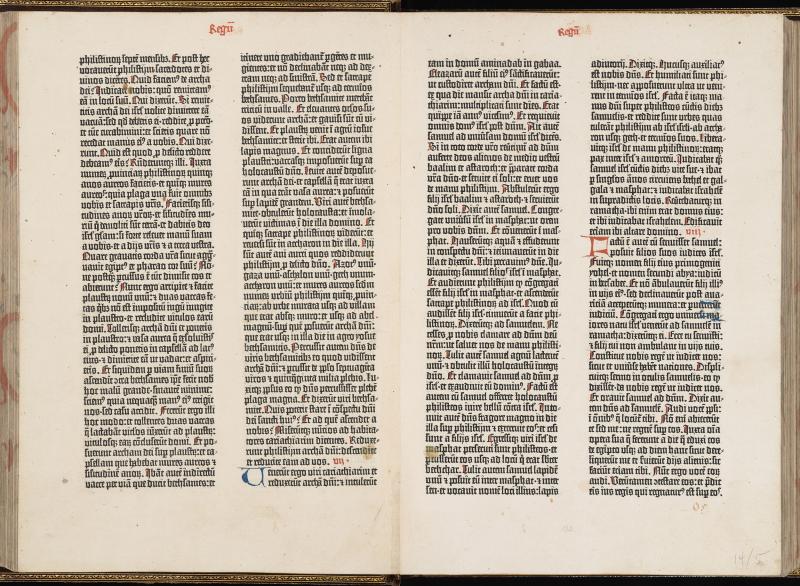 Regū
philistinoꝝ septē mensibꝰ. Et post hec
vocaverūt philistijm sacerdotes et di-
uinos dicētes. Quid faciemꝰ de archa
dei? Indicate nobis: quō remittamꝰ
eā in locū suū. Qui dixerūt. Si remit-
titis archā dei isrl̄ nolite dimittere eā
vacuā: sed qd̄ debetis ei reddite ꝓ pctō:
et tūc curabimini: et scietis quare nō
recedat manus eiꝰ a vobis. Qui dixe-
runt. Quid ē
debeamꝰ ei? Rn̄deruntq; illi. Iuxta
numerū ꝓuinciaꝝ philistinoꝝ quinq;
anos aureos facietis et quiq; mures
aureos: quia plaga una fuit omnibꝰ
vobis et satrapis vr̄is. Facietisq; simi-
litudines anoꝝ vr̄oꝝ et similitudines muri-
ū q demoliti sūt terrā: et dabitis deo
isrl̄ gloriā: si forte relevet manū suam
a vobis et a dijs vr̄is et a terra vestra.
Quare gravatis corda vr̄a sicut aggra-
vauit egipꝰ et pharao cor suū? Nō-
ne postq̄ percussus ē tūc dimisit eos et
abierunt? Nunc ergo arripite et facite
plaustrū novū unū: et duas vaccas fe-
tas qbꝰ nō est impositū iugū iungite
in plaustro: et recludite vitulos earū
domi. Tolletisq; archā dn̄i et ponetis
in plaustro: et vasa aurea q̄ exsoluistis
ei ꝓ delicto ponetis in capsellā ad latꝰ
eiꝰ: et dimittite eā ut vadat: et aspici-
etis. Et siquidem p viam finiū suoꝝ
ascenderit ↄtra bethsames: ipse fecit nobis
hoc malū grande: sin autē minime:
sciemꝰ quia nequaq̄ manꝰ eiꝰ tetigit
nos: sed casu accidit. Fecerūt ergo illi
hoc modo: et tollentes duas vaccas
q̄ lactabāt vitulos iūxerūt ad plaustrū:
vitulosq; eaꝝ ↄcluserūt domi. Et po-
suerunt archam dei sup plaustrū: et ca-
psellam que habebat mures aureos et
similitudinē anoꝝ. Ibāt autē indirectū
vacce per viā que ducit bethsames: et
itinere uno gradiebanꝰ pgētes et mu-
gientes: et nō declinabāt neq; ad dex-
teram neq; ad sinistrā. Sed et satrape
philistijm sequebanꝰ usq; ad terminos
bethsames. Porro bethsamite metebāt
triticū in valle. Et eleuantes oculos su-
os viderunt archā: et gauisi sūt cū vi-
dissent. Et plaustrū venit ī agrū iosue
bethsamite: et stetit ibi. Erat autem ibi
lapis magnus. Et conciderūt ligna
plaustri: vaccasq; imposuerūt sup ea
holocaustū dn̄o. Leuite autē deposue-
runt archā dei et capsellā q̄ erat iuxta
eā in qua erāt vasa aurea: et posuerūt
sup lapidē grandem. Viri autē bethsa-
mite obtulerūt holocausta: et immola-
verūt victimas ī die illa domino. Et
quinq; satrape philistinoꝝ viderūt: et
reuersi sūt in accharon in die illa. Hij
sūt autē ani aurei quos reddiderunt
philistijm ꝓ delicto dn̄o. Azotꝰ unū:
gaza unū: ascholon unū: geth unum:
accharon unū: et mures aureos scdm̄
numerū urbiū philistijm quinq; ꝓuin-
ciaꝝ: ab urbe murata usq; ad villam
que erat absq; muro: et usq; ad abel
magnū sup quē posuerūt archā dn̄i:
que erat usq; in illa die in agro iosue
bethsamitis. Percussit autem dn̄s de
viris bethsamitibꝰ eo quod vidissent
archā dn̄i: et pcussit de ppl̄o septuaginta
viros et quinq̄ginta milia plebis. Lu-
xitq; pplūs eo qd̄ dn̄s percussisset plebē
plaga magna. Et dixerūt viri bethsa-
mite. Quis poterit stare ī ↄspectu dn̄i
dei sancti huiꝰ? Et ad quē ascendet a
nobis? Miseruntq; nūcios ad habita-
tores cariathiarim dicentes. Reduxe-
runt philistijm archā dn̄i: descendite
et reducite eam ad vos. vii
Venerūt ergo viri cariathiarim et
reduxerūt archā dn̄i: et intulerūt
Regū
eam in domū aminadab in gabaa.
Eleazarū autē filiū eiꝰ sāctificauerūt:
ut custodiret archam dn̄i. Et factū est
ex qua die mansit archa dn̄i in caria-
thiarim: multiplicati sunt dies. Erat
quippe iā annꝰ vicesimꝰ. Et requieuit
omnis domꝰ isrl̄ post dn̄m. Ait autē
samuel ad uniūsam domū isrl̄ dicēs.
Si in toto corde vr̄o reūtimī ad dn̄m
auferte deos alienos de medio vestrū
baalim et astaroth: et p̄parate corda
vr̄a dn̄o et seruite ei soli: et eruet vos
de manu philistijm. Abstulerūt ergo
filij isrl̄ baalim et astaroth: et seruierūt
dn̄o soli. Dixit autē samuel. Congre-
gate uniūsū isrl̄ in masphat: ut orem
pro vobis dn̄m. Et cōuenerūt ī mas-
phat. Hauseruntq; aquā et effuderunt
in conspectu dn̄i: et ieiunauerūt in die
illa et dixerūt. Tibi peccauimꝰ dn̄e. Iu-
dicauitq; samuel filios isrl̄ ī masphat.
Et audierunt philistijm qd̄ cōgregati
essēt filij isrl̄ in masphat: et ascenderūt
satrape philistinoꝝ ad isrl̄. Quod cū
audissēt filij isrl̄ timuerūt a facie phi-
listinoꝝ. Dixeruntq; ad samuelem. Ne
cesses ꝓ nobis clamare ad dn̄m deū
nr̄m: ut saluet nos de manu philisti-
noꝝ. Tulit autē samuel agnū lactentē
unū: et obtulit illū holocaustū integrū
dn̄o. Et clamauit samuel ad dn̄m ꝓ
isrl̄: et exaudiuit eū dominꝰ. Factū est
autem cū samuel offerret holocaustū
philisteos inire bellū cōtra isrl̄. Into-
nuit autē dn̄s fragore magno in die
illa sup philistijm: et exterruit eos: et cesi
sunt a filijs isrl̄. Egressiq; viri isrl̄ de
masphat psecuti sunt philisteos: et
pcusserūt eos usq; ad locū q̄ erat subter
bethchar. Tulit autem samuel lapidē
unū et posuit eū inter masphat et inter
sen: et vocauit nomē loci illius: lapis
adiutorij. Dixitq;. Hucusq; auxiliatꝰ
est nobis dn̄s. Et humiliati sunt phi-
listijm: nec apposuerunt ultra ut veni-
rent in terminos isrl̄. Facta ē itaq; ma-
nus dn̄i super philisteos cūctis diebꝰ
samuelis: et reddite sunt urbes quas
tulerāt philistijm ab isrl̄ isrl̄i: ab accha-
ron usq; geth: et terminos suos. Libera-
uitq; isrl̄ de manu philistinoꝝ: eratq;
pax inter isrl̄ et amorreū. Iudicabat q̄
samuel isrl̄ cūctis diebꝰ vite sue: et ibat
p singulos annos circuiens bethel et gal-
gala et masphat: et iudicabat israhelē
in supradictis locis. Reūtebaturq; in
ramatha: ibi enim erat domus eiꝰ:
et ibi iudicabat israhelem. Edificauit
etiam ibi altare domino. viii
Factū ē autē cū senuisset samuel:
posuit filios suos iudices isrl̄.
Fuitq; nomen filij sui primogeniti
iohel: et nomen secundi abya: iudicū
in bersabee. Et nō ambulauerūt filij illiꝰ
in vijs eiꝰ: sed declinauerūt post aua-
riciā: acceperuntq; munera: et puerterūt
iudiciū. Cōgregati ergo uniūsi ma-
iores natu isrl̄ venerūt ad samuelē in
ramatha: dixeruntq; ei. Ecce tu senuisti:
et filij tui non ambulant in vijs tuis.
Constitue nobis regē ut iudicet nos:
sicut et uniūse habēt nationes. Displi-
cuitq; sermo in oculis samuelis: eo qd̄
dixissēt: da nobis regē ut iudicet nos.
Et orauit samuel ad dn̄m. Dixit au-
tem dn̄s ad samuelē. Audi vocē ppl̄i:
ī oībus q̄ locūt̄ tibi. Nō enī te abiecerūt
sed me: ne regnē sup eos. Iuxta oīa
opera sua q̄ fecerunt a die q̄ eduxi eos
de egipto usq; ad diem hanc: sicut dere-
liquerūt me et seruierūt dijs alienis: sic
faciunt etiam tibi. Nūc ergo vocē eoꝝ
audi. Verūtamen ↄtestare eos: et p̄dic
eis ius regis qui regnaturꝰ est sup eos.
14/5